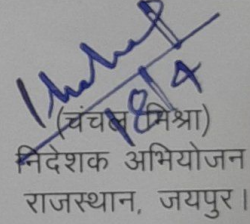 18/4
(चंचल मिश्रा)
निदेशक अभियोजन
राजस्थान, जयपुर।